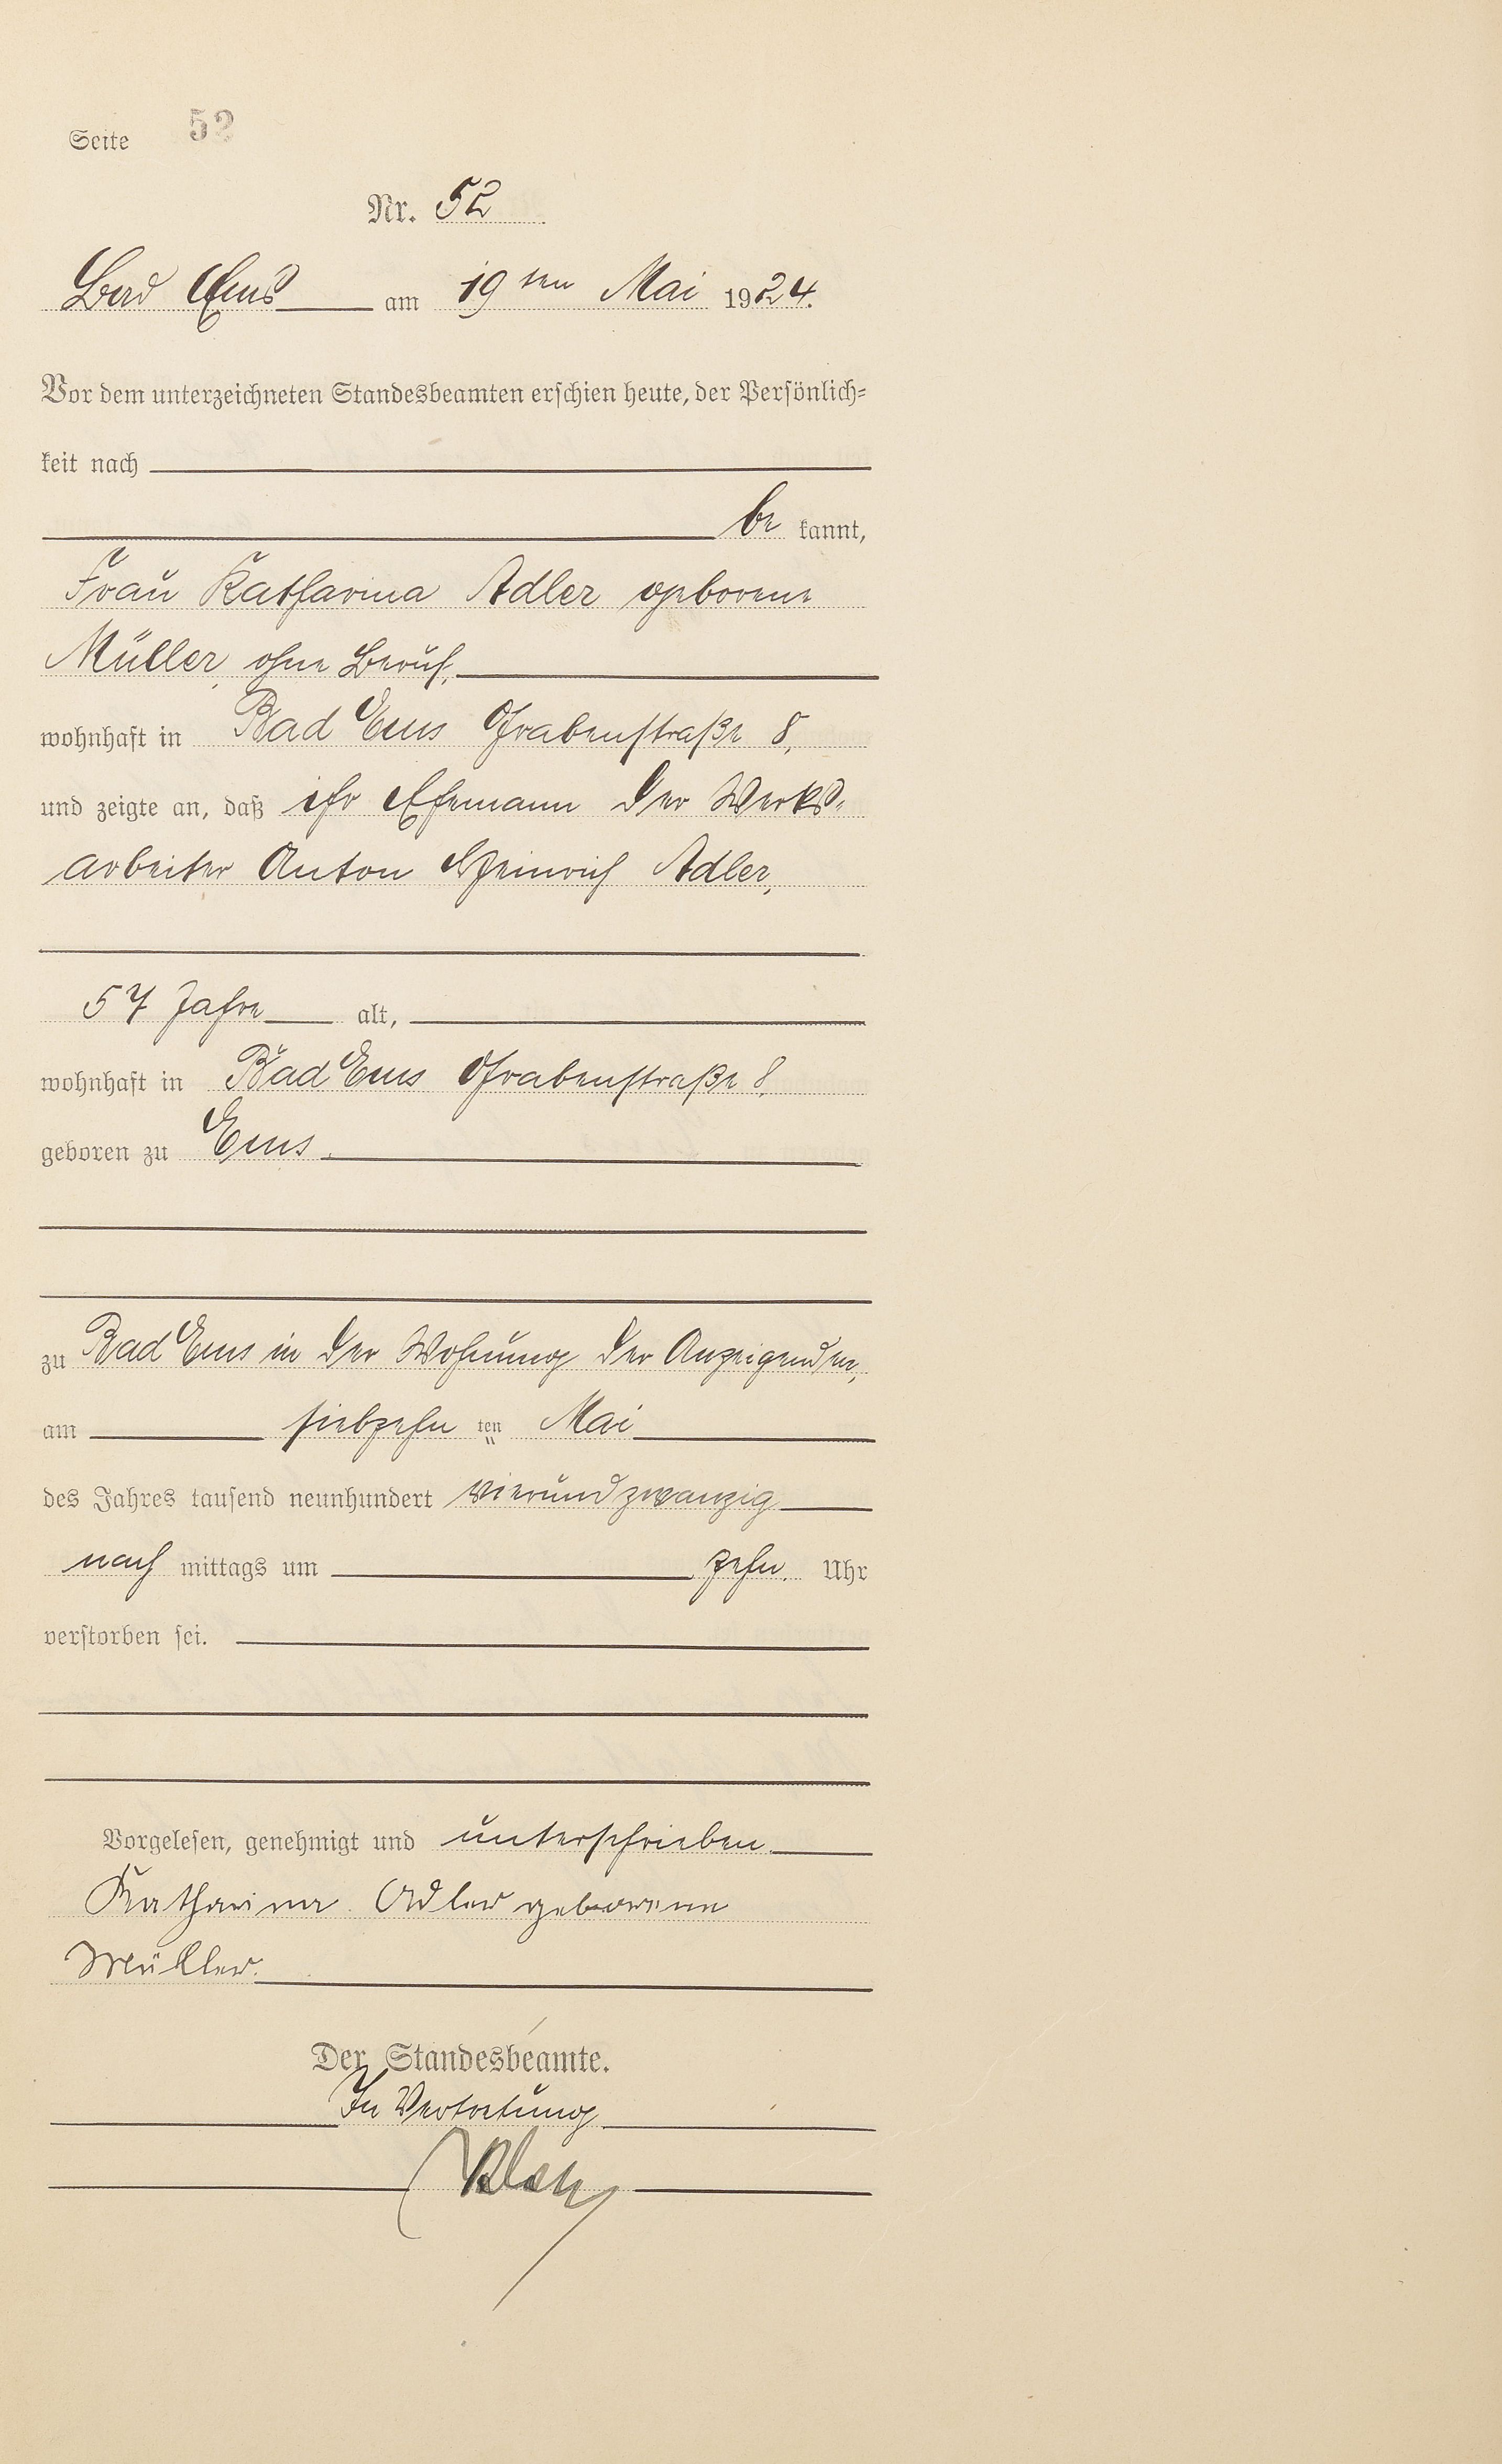 Seite 52
Nr. 52
Bad Ems am 19ten Mai 1924.
Vor dem unterzeichneten Standesbeamten erschien heute, der Persönlich-
keit nach
be kannt,
Frau Katharina Adler geborene
Müller, ohne Beruf,
wohnhaft in Bad Ems Grabenstraße 8,
und zeigte an, daß ihr Ehemann der Werks-
arbeiter Anton Heinrich Adler,
57 Jahre alt,
wohnhaft in Bad Ems Grabenstraße 8,
geboren zu Ems.
zu Bad Ems in der Wohnung der Anzeigenden,
am siebzehn ten Mai
des Jahres tausend neunhundert vierundzwanzig
nach mittags um zehn. Uhr
verstorben sei.
Vorgelesen, genehmigt und unterschrieben.
Katharina Adler geborene
Müller.
Der Standesbeamte.
In Vertretung